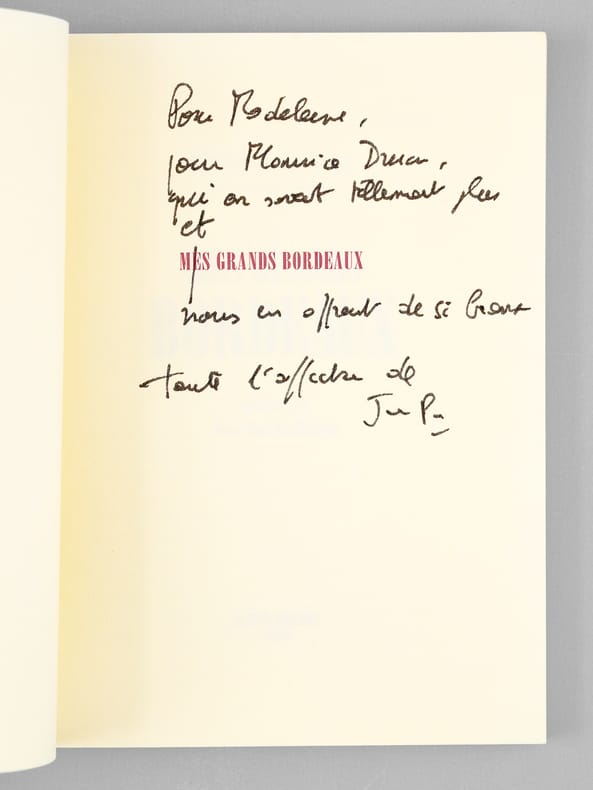 Pour Madeleine,
pour Maurice Druon,
qui en savent tellement plus
et
MES GRANDS BORDEAUX
nous en offrent de si bons
toute l'affection de